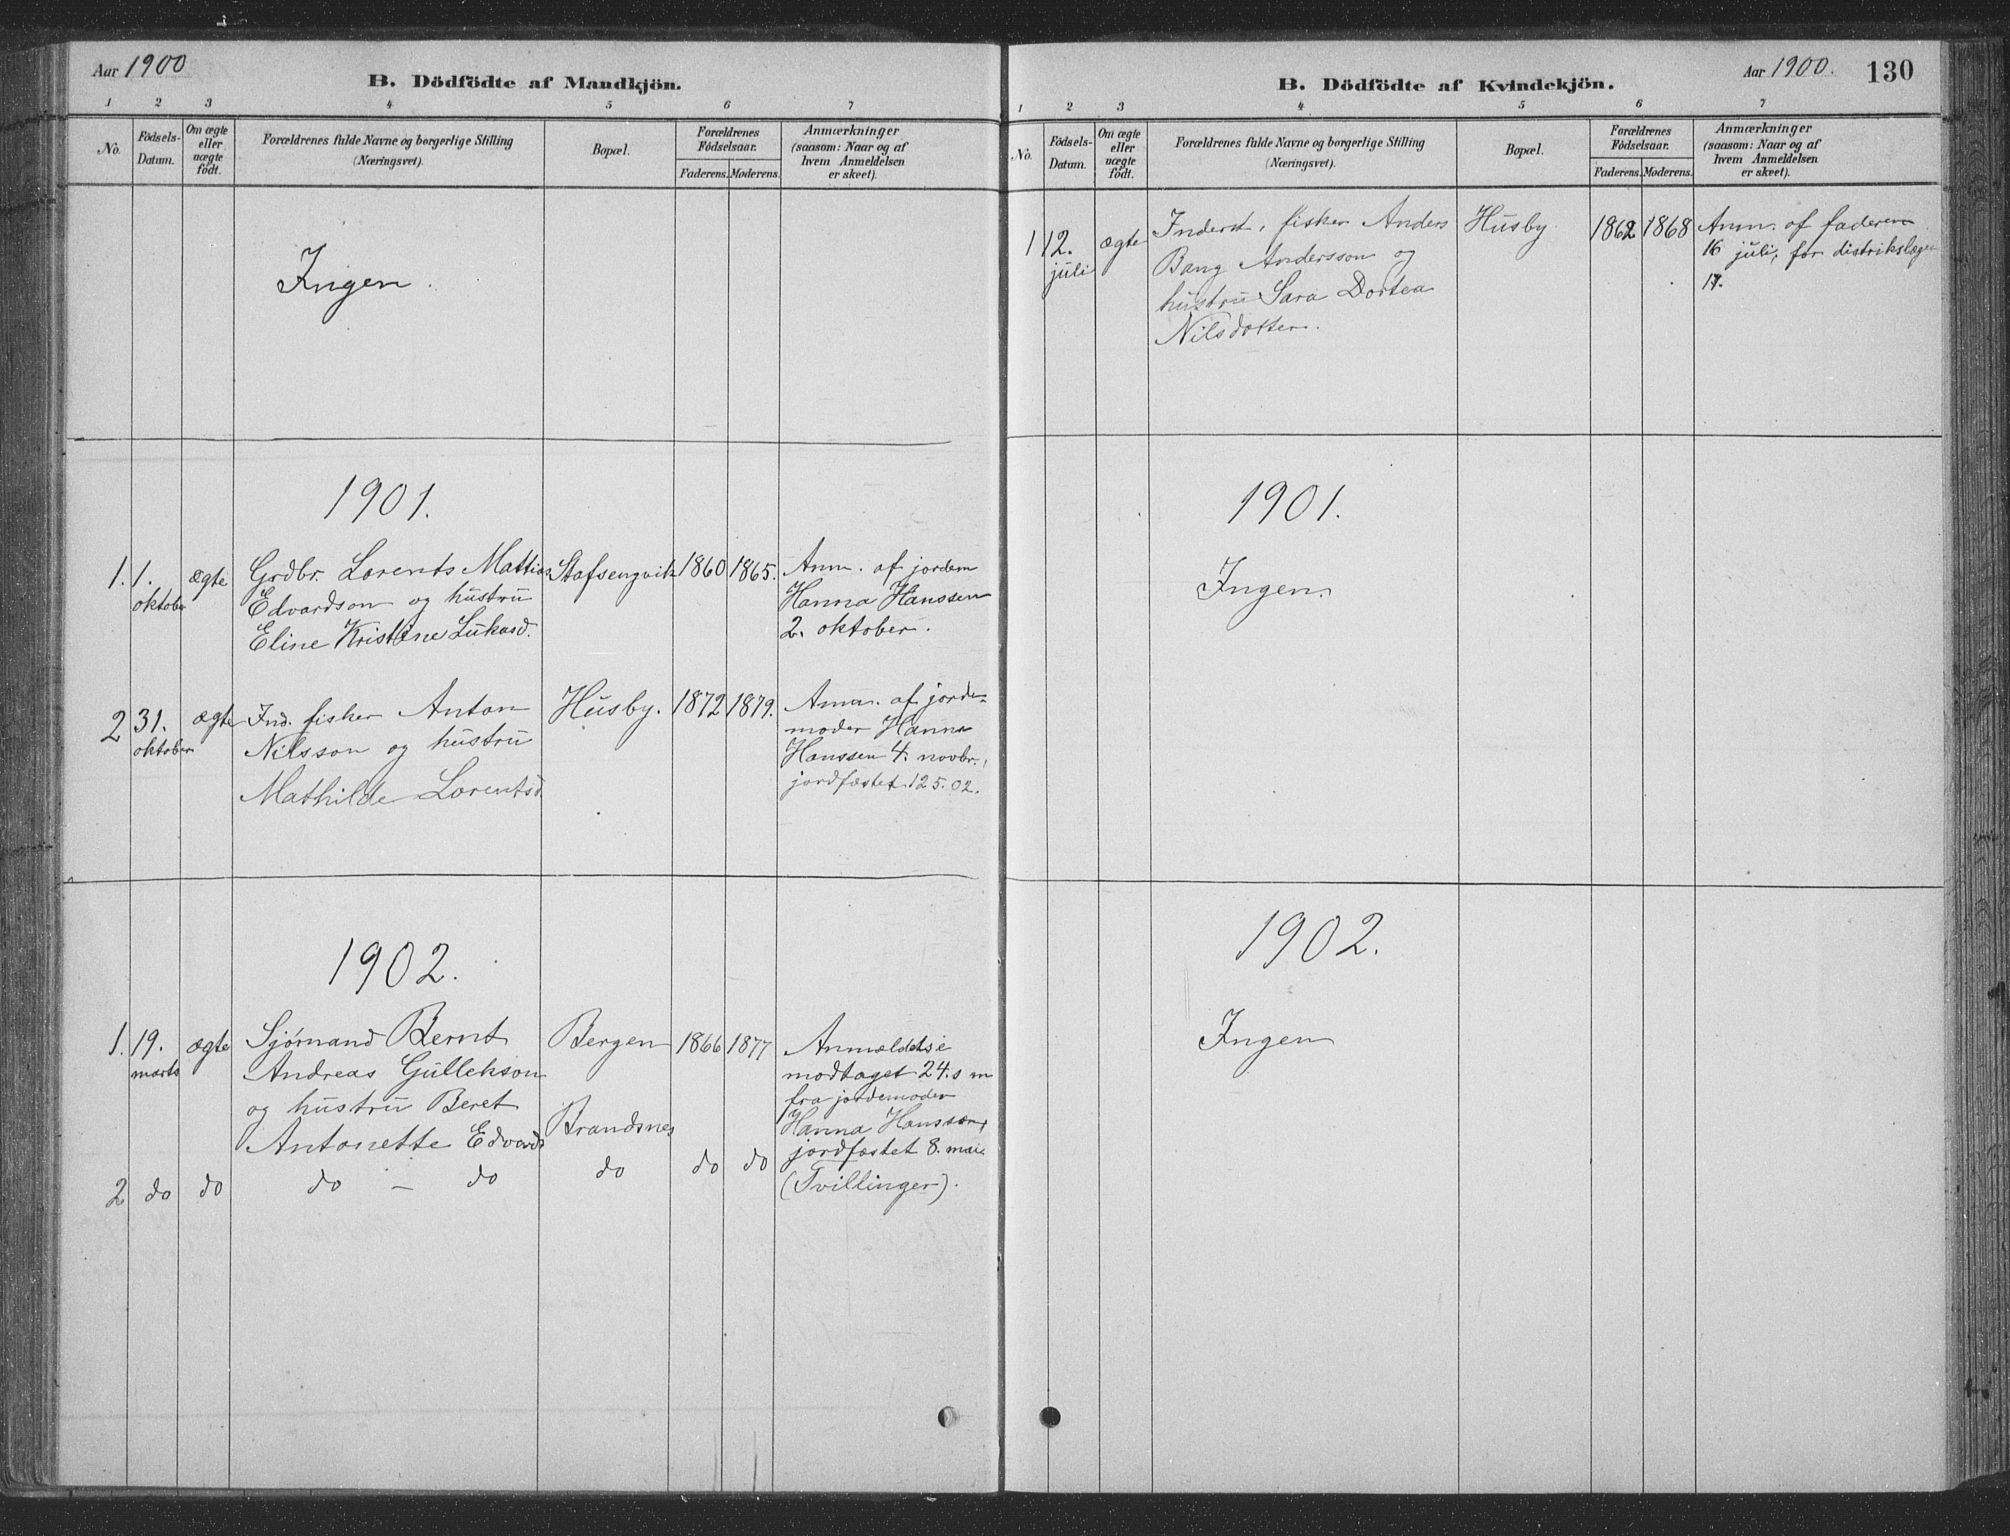 Aar 1900
B. Dödfödte af Mandkjön.
1 2 3 4 5 6 7
No.
Födsels-
Datum.
Om ægte
eller
uægte
födt.
Forældrenes fulde Navne og borgerlige Stilling
(Næringsvei).
Bopæl.
Forældrenes
Födselsaar.
Faderens. Moderens.
Anmærkninger
(saasom: Naar og af
hvem Anmeldelsen
er skeet).
Ingen.
1901.
1. 1. ægte Grdbr. Lorents Mattias Stafsengvik 1860 1865. Anm. af jordem
oktober Edvardson og hustru Hanna Hanssen
Eline Kristine Lukasd. 2. oktober.
2 31. ægte Ind. fisker Anton Husby. 1872 1879. Anm. af jorde-
oktober Nilsson og hustru moder Hanna
Mathilde Lorentsd Hanssen 4. novbr.,
jordfæstet 12 5. 02.
1902.
1. 19. ægte Sjømand Bernt Bergen 1866 1877 Anmeldelse
marts Andreas Gulleksen modtaget 24. s m
og hustru Beret fra jordemoder
Antonette Edvards Brandsnes Hanna Hanssen,
jordfæstet 8. mai.
2 do do do – do do do do (Tvillinger).
Aar 1900. 130
B. Dödfödte af Kvindekjön.
1 2 3 4 5 6 7
No.
Födsels-
Datum.
Om ægte
eller
uægte
födt.
Forældrenes fulde Navne og borgerlige Stilling
(Næringsvei).
Bopæl.
Forældrenes
Födselsaar.
Faderens. Moderens.
Anmærkninger
(saasom: Naar og af
hvem Anmeldelsen
er skeet).
1 12. ægte Inderst, fisker Anders Husby. 1862 1868 Anm. af faderen
juli Bang Andersson og 16 juli, for distriktslægen
hustru Sara Dortea 17.
Nilsdotter.
1901.
Ingen.
1902.
Ingen